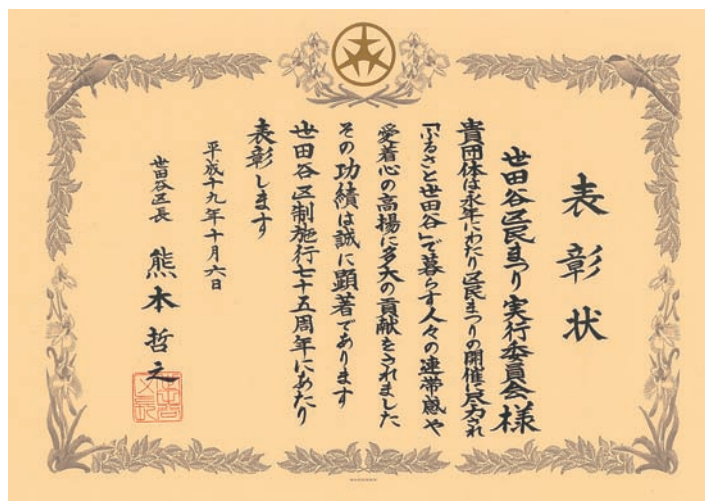 表彰状
世田谷区民まつり実行委員会様
貴団体は永年にわたり区民まつりの開催に尽力され
「ふるさと世田谷」で暮らす人々の連帯感や
愛着心の高揚に多大の貢献をされました
その功績は誠に顕著であります
世田谷区制施行七十五周年にあたり
表彰します
平成十九年十月六日
世田谷区長 熊本哲之